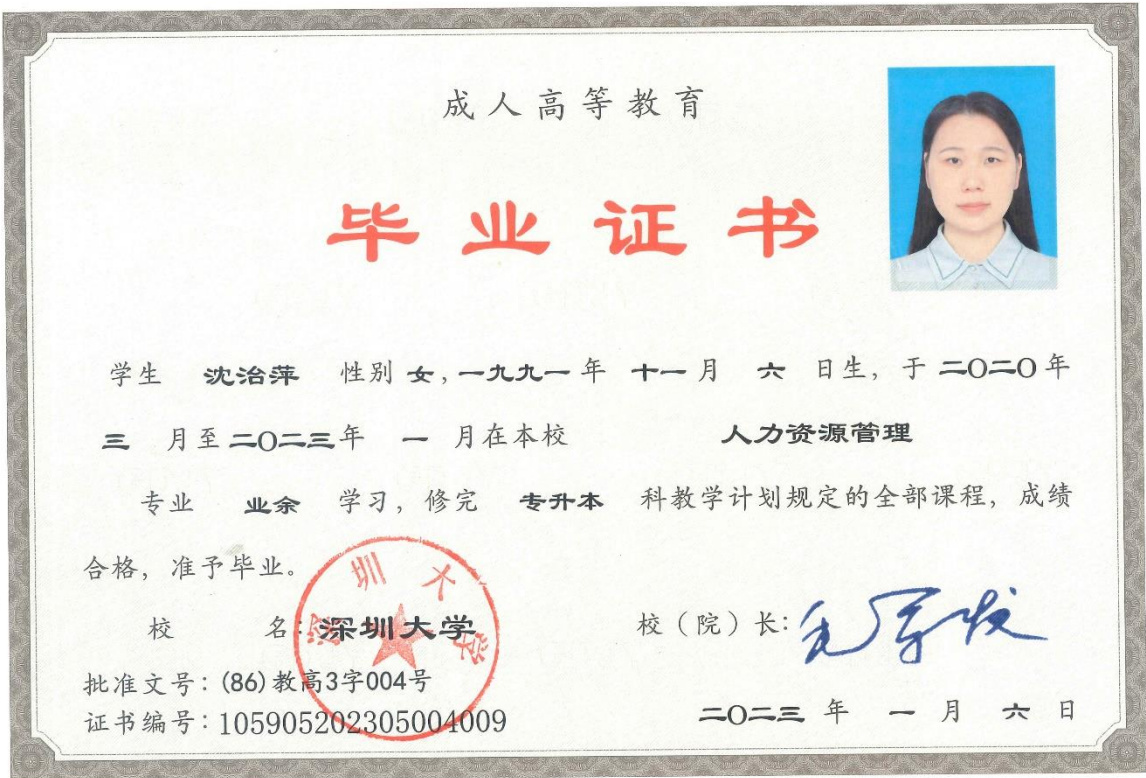 成人高等教育
毕业证书
学生 沈治萍 性别 女,一九九一年 十一月 六 日生, 于二〇二〇年
三 月至二〇二三年 一 月在本校 人力资源管理
专业 业余 学习, 修完 专升本 科教学计划规定的全部课程, 成绩
合格, 准予毕业。
校 名: 深圳大学
深圳大学
校（院）长: 毛军发
批准文号: (86)教高3字004号
证书编号: 105905202305004009
二〇二三 年 一 月 六 日